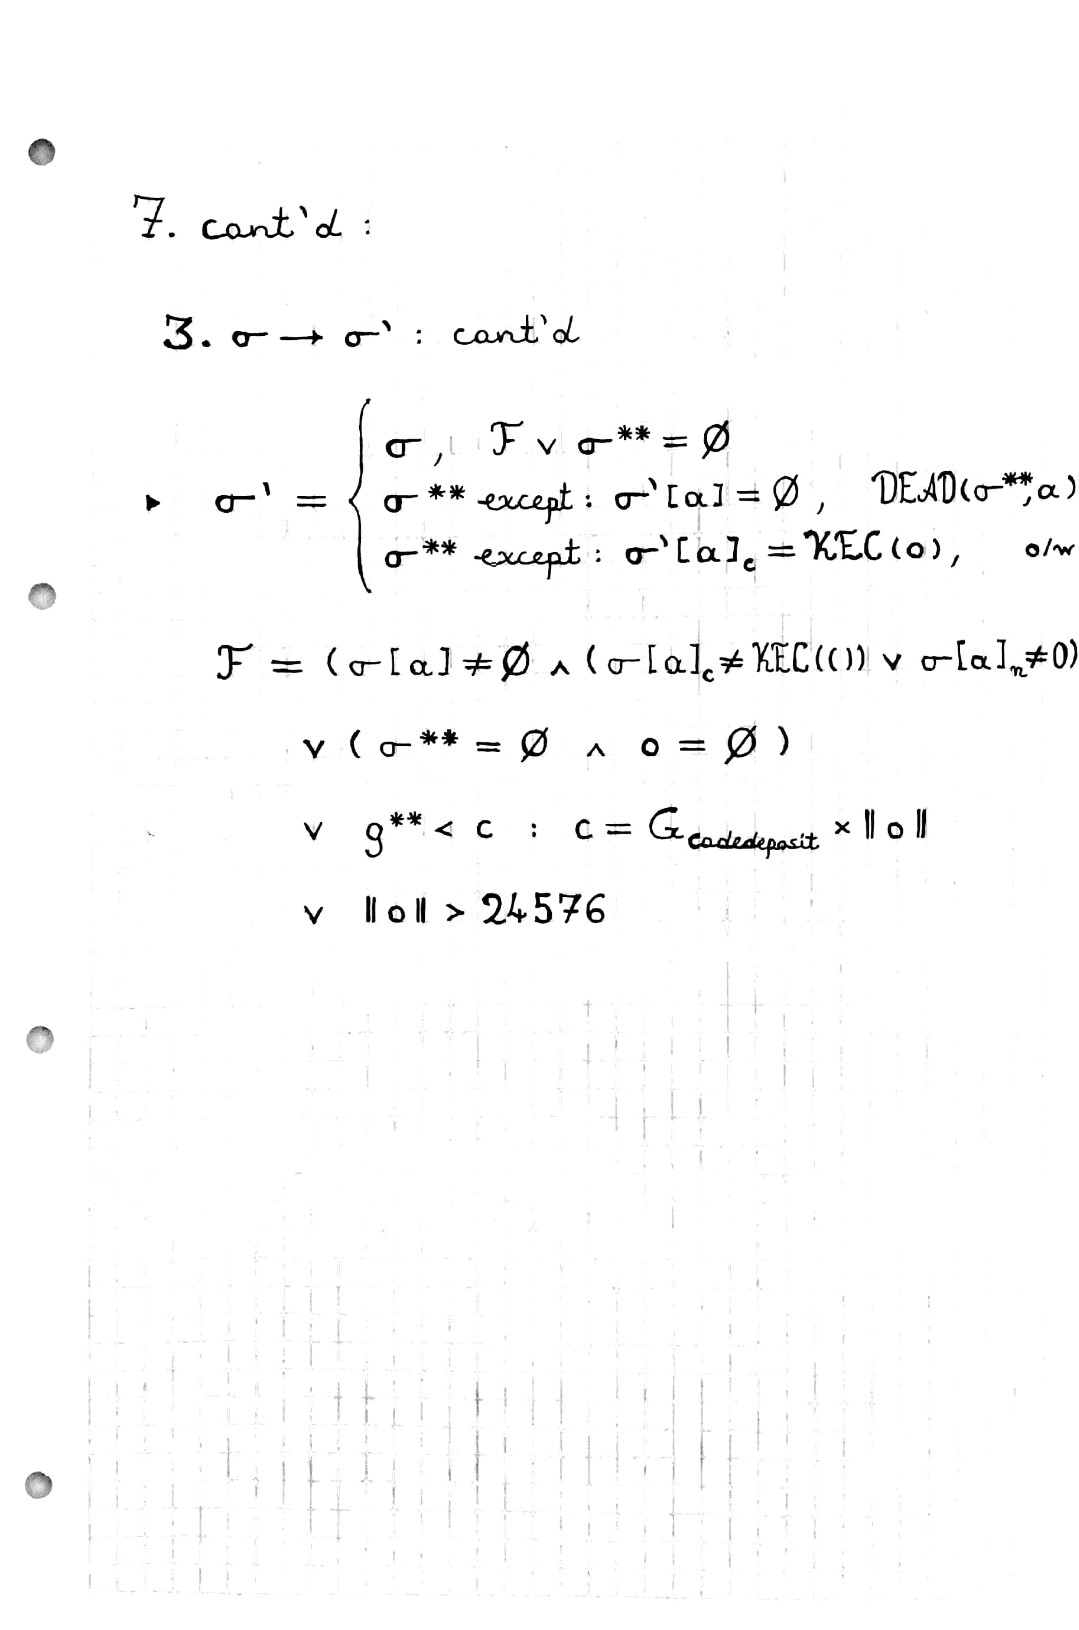 7. cont'd :
3. σ → σ' : cont'd
▸ σ' = { σ, F ∨ σ** = ∅
σ** except : σ'[a] = ∅ , DEAD(σ**, a)
σ** except : σ'[a]c = KEC(o), o/w
F = (σ[a] ≠ ∅ ∧ (σ[a]c ≠ KEC(()) ∨ σ[a]n ≠ 0)
∨ ( σ** = ∅ ∧ o = ∅ )
∨ g** < c : c = Gcodedeposit × ‖o‖
∨ ‖o‖ > 24576